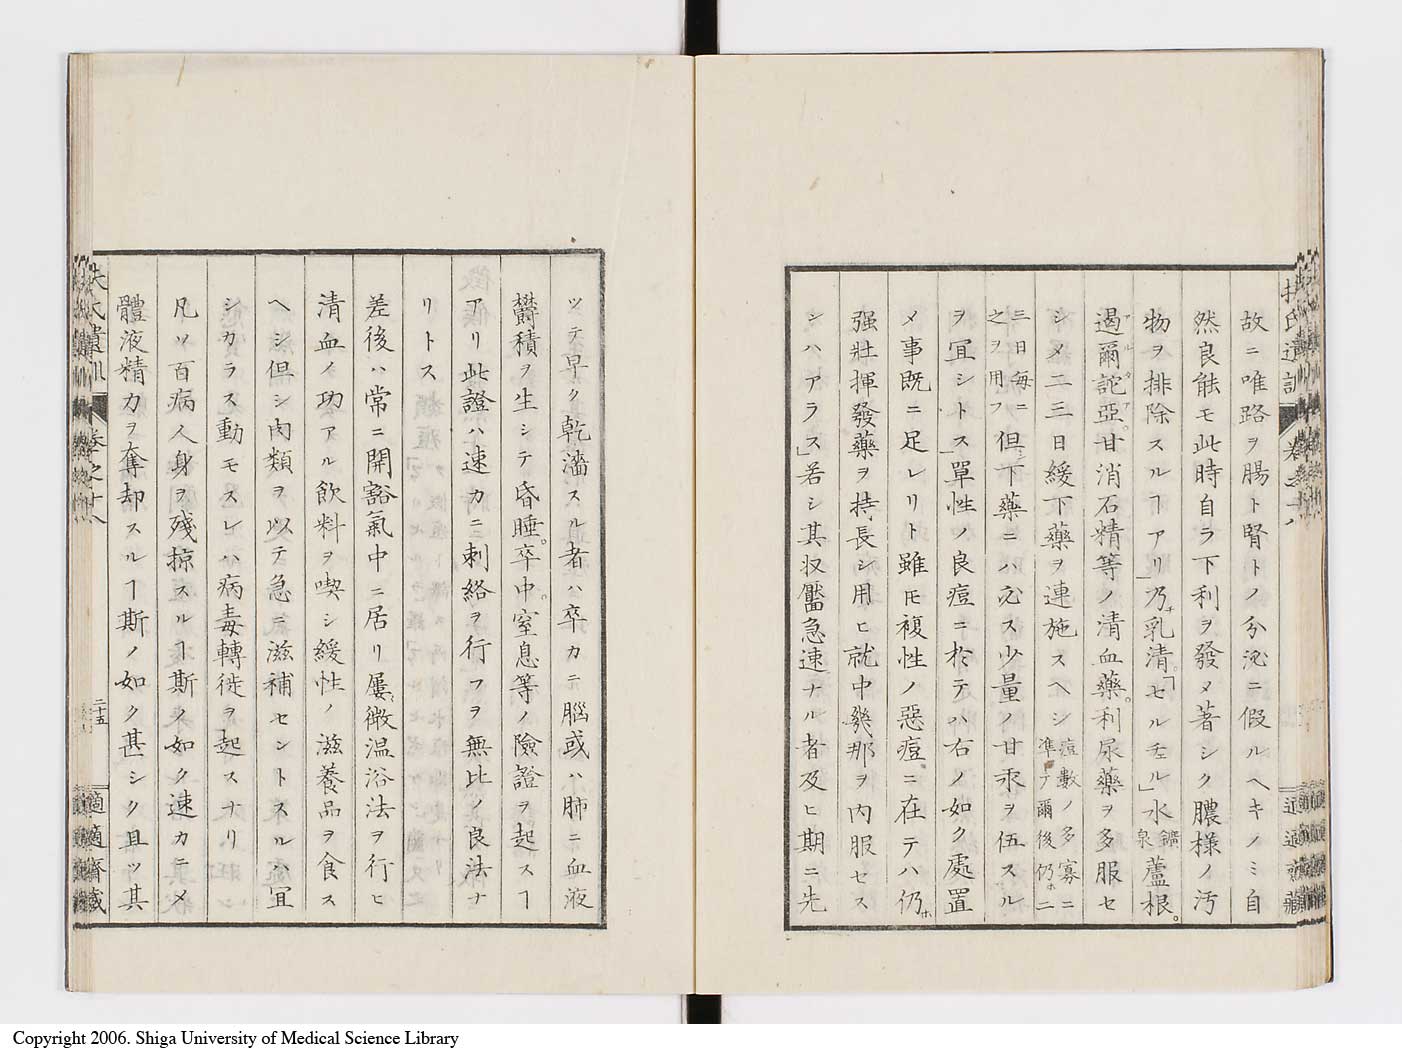 故ニ唯路ヲ腸ト腎トノ分泌ニ假ルヘキノミ自
然良能モ此時自ラ下利ヲ發メ著シク膿様ノ汚
物ヲ排除スルヿアリ」乃チ乳清。セルチェル」水鑛泉蘆根。
遏爾詑亞。甘消石精等ノ清血藥。利尿藥ヲ多服セ
シメ二三日緩下藥ヲ連施スヘシ痘數ノ多寡ニ準テ爾後仍ホ二
三日毎ニ之ヲ用フ但シ下藥ニハ必ス少量ノ甘汞ヲ伍スル
ヲ冝シトス」單性ノ良痘ニ於テハ右ノ如ク處置
メ事既ニ足レリト雖モ複性ノ惡痘ニ在テハ仍ホ
强壯揮發藥ヲ持長シ用ヒ就中幾那ヲ内服セス
ンハアラス」若シ其収靨急速ナル者及ヒ期ニ先
扶氏遺訓 卷之十八 適適齋藏
ツテ早ク乾濇スル者ハ卒カニ腦或ハ肺ニ血液
欝積ヲ生シテ昏睡。卒中。窒息等ノ險證ヲ起スヿ
アリ此證ハ速カニ刺絡ヲ行フヲ無比ノ良法ナ
リトス
差後ハ常ニ開豁氣中ニ居リ屢〻微温浴法ヲ行ヒ
清血ノ功アル飲料ヲ喫シ緩性ノ滋養品ヲ食ス
ヘシ但シ肉類ヲ以テ急ニ滋補セントスルハ冝
シカラス動モスレハ病毒轉徙ヲ起スナリ
凡ソ百病人身ヲ殘掠スルヿ斯ク如ク速カニメ
體液精力ヲ奪却スルヿ斯ノ如ク甚シク且ツ其
扶氏遺訓 卷之十八 二十五 適適齋藏
Copyright 2006. Shiga University of Medical Science Library